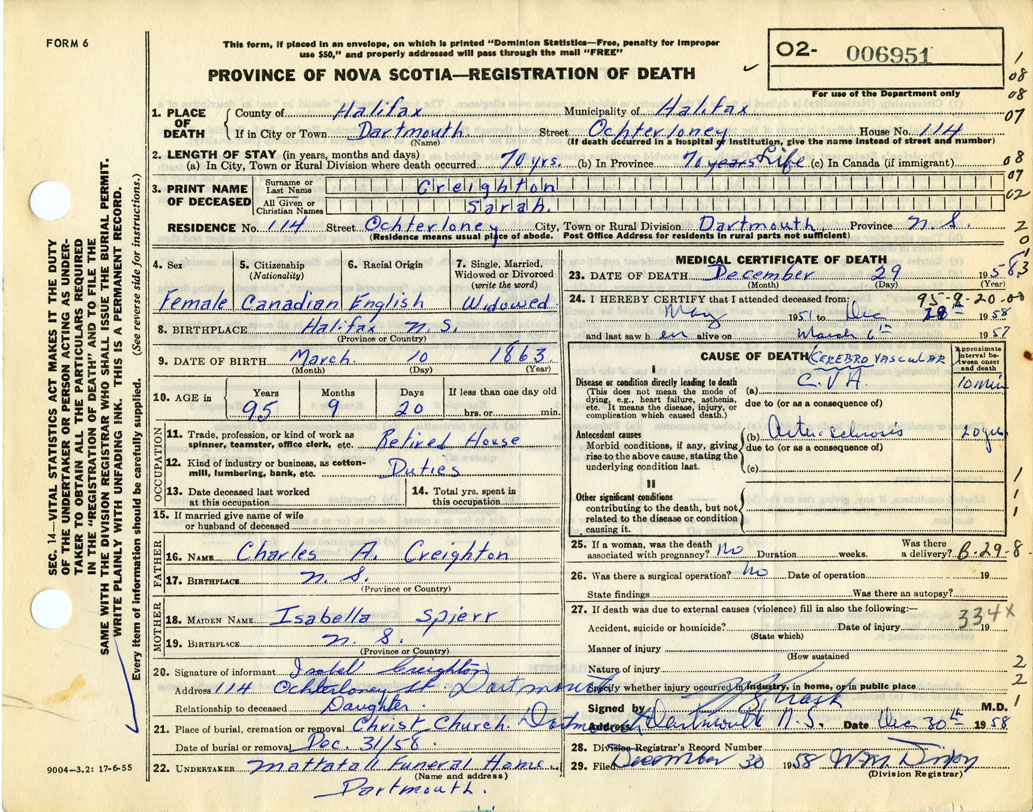 FORM 6
This form, if placed in an envelope, on which is printed "Dominion Statistics—Free, penalty for improper
use $50," and properly addressed will pass through the mail "FREE"
PROVINCE OF NOVA SCOTIA—REGISTRATION OF DEATH
O2- 006951
For use of the Department only
1. PLACE OF DEATH
County of Halifax Municipality of Halifax
If in City or Town Dartmouth Street Ochterloney House No. 114
(Name) (If death occurred in a hospital or institution, give the name instead of street and number)
2. LENGTH OF STAY (in years, months and days)
(a) In City, Town or Rural Division where death occurred 70 yrs. (b) In Province 70 years Life (c) In Canada (if immigrant)
3. PRINT NAME OF DECEASED
Surname or Last Name Creighton
All Given or Christian Names Sarah.
RESIDENCE No. 114 Street Ochterloney City, Town or Rural Division Dartmouth, Province N.S.
(Residence means usual place of abode. Post Office Address for residents in rural parts not sufficient)
4. Sex Female
5. Citizenship (Nationality) Canadian
6. Racial Origin English
7. Single, Married, Widowed or Divorced (write the word) Widowed
8. BIRTHPLACE Halifax N.S.
(Province or Country)
9. DATE OF BIRTH March 10 1863
(Month) (Day) (Year)
10. AGE in Years 95 Months 9 Days 20 If less than one day old hrs. or min.
OCCUPATION
11. Trade, profession, or kind of work as spinner, teamster, office clerk, etc. Retired House
12. Kind of industry or business, as cotton-mill, lumbering, bank, etc. Duties
13. Date deceased last worked at this occupation
14. Total yrs. spent in this occupation
15. If married give name of wife or husband of deceased
FATHER
16. NAME Charles A. Creighton
17. BIRTHPLACE N.S.
(Province or Country)
MOTHER
18. MAIDEN NAME Isabella Spierr
19. BIRTHPLACE N.S.
(Province or Country)
20. Signature of informant Isabel Creighton
Address 114 Ochterloney St. Dartmouth
Relationship to deceased Daughter.
21. Place of burial, cremation or removal Christ Church. Dartmouth
Date of burial or removal Dec. 31/58.
22. UNDERTAKER Mattatall Funeral Home.
(Name and address)
Dartmouth.
MEDICAL CERTIFICATE OF DEATH
23. DATE OF DEATH December 29 1958
(Month) (Day) (Year)
24. I HEREBY CERTIFY that I attended deceased from: 95-9-20-00
May 1951 to Dec 1958
and last saw h er alive on March 6th 1957
CAUSE OF DEATH CEREBRO VASCULAR
Approximate interval between onset and death
I
Disease or condition directly leading to death (a) C.V.A. 10 min
(This does not mean the mode of dying, e.g., heart failure, asthenia, etc. It means the disease, injury, or complication which caused death.)
due to (or as a consequence of)
Antecedent causes (b)
Morbid conditions, if any, giving rise to the above cause, stating the underlying condition last.
due to (or as a consequence of)
(c)
20 yrs
II
Other significant conditions
contributing to the death, but not related to the disease or condition causing it.
25. If a woman, was the death associated with pregnancy? No Duration weeks. Was there a delivery? B-29-8
26. Was there a surgical operation? No Date of operation 19
State findings Was there an autopsy?
27. If death was due to external causes (violence) fill in also the following:— 334x
Accident, suicide or homicide? Date of injury 19
(State which)
Manner of injury
(How sustained
Nature of injury
Specify whether injury occurred in industry, in home, or in public place
Signed by M.D.
Address Dartmouth N.S. Date Dec 30th 1958
28. Division Registrar's Record Number
29. Filed December 30 1958
(Division Registrar)
1
08
08
07
08
07
02
2
0
83
1
1
1
2
2
1
SEC. 14—VITAL STATISTICS ACT MAKES IT THE DUTY
OF THE UNDERTAKER OR PERSON ACTING AS UNDER-
TAKER TO OBTAIN ALL THE PARTICULARS REQUIRED
IN THE "REGISTRATION OF DEATH" AND TO FILE THE
SAME WITH THE DIVISION REGISTRAR WHO SHALL ISSUE THE BURIAL PERMIT.
WRITE PLAINLY WITH UNFADING INK. THIS IS A PERMANENT RECORD.
Every item of information should be carefully supplied. (See reverse side for instructions.)
9004—3.2: 17-6-55